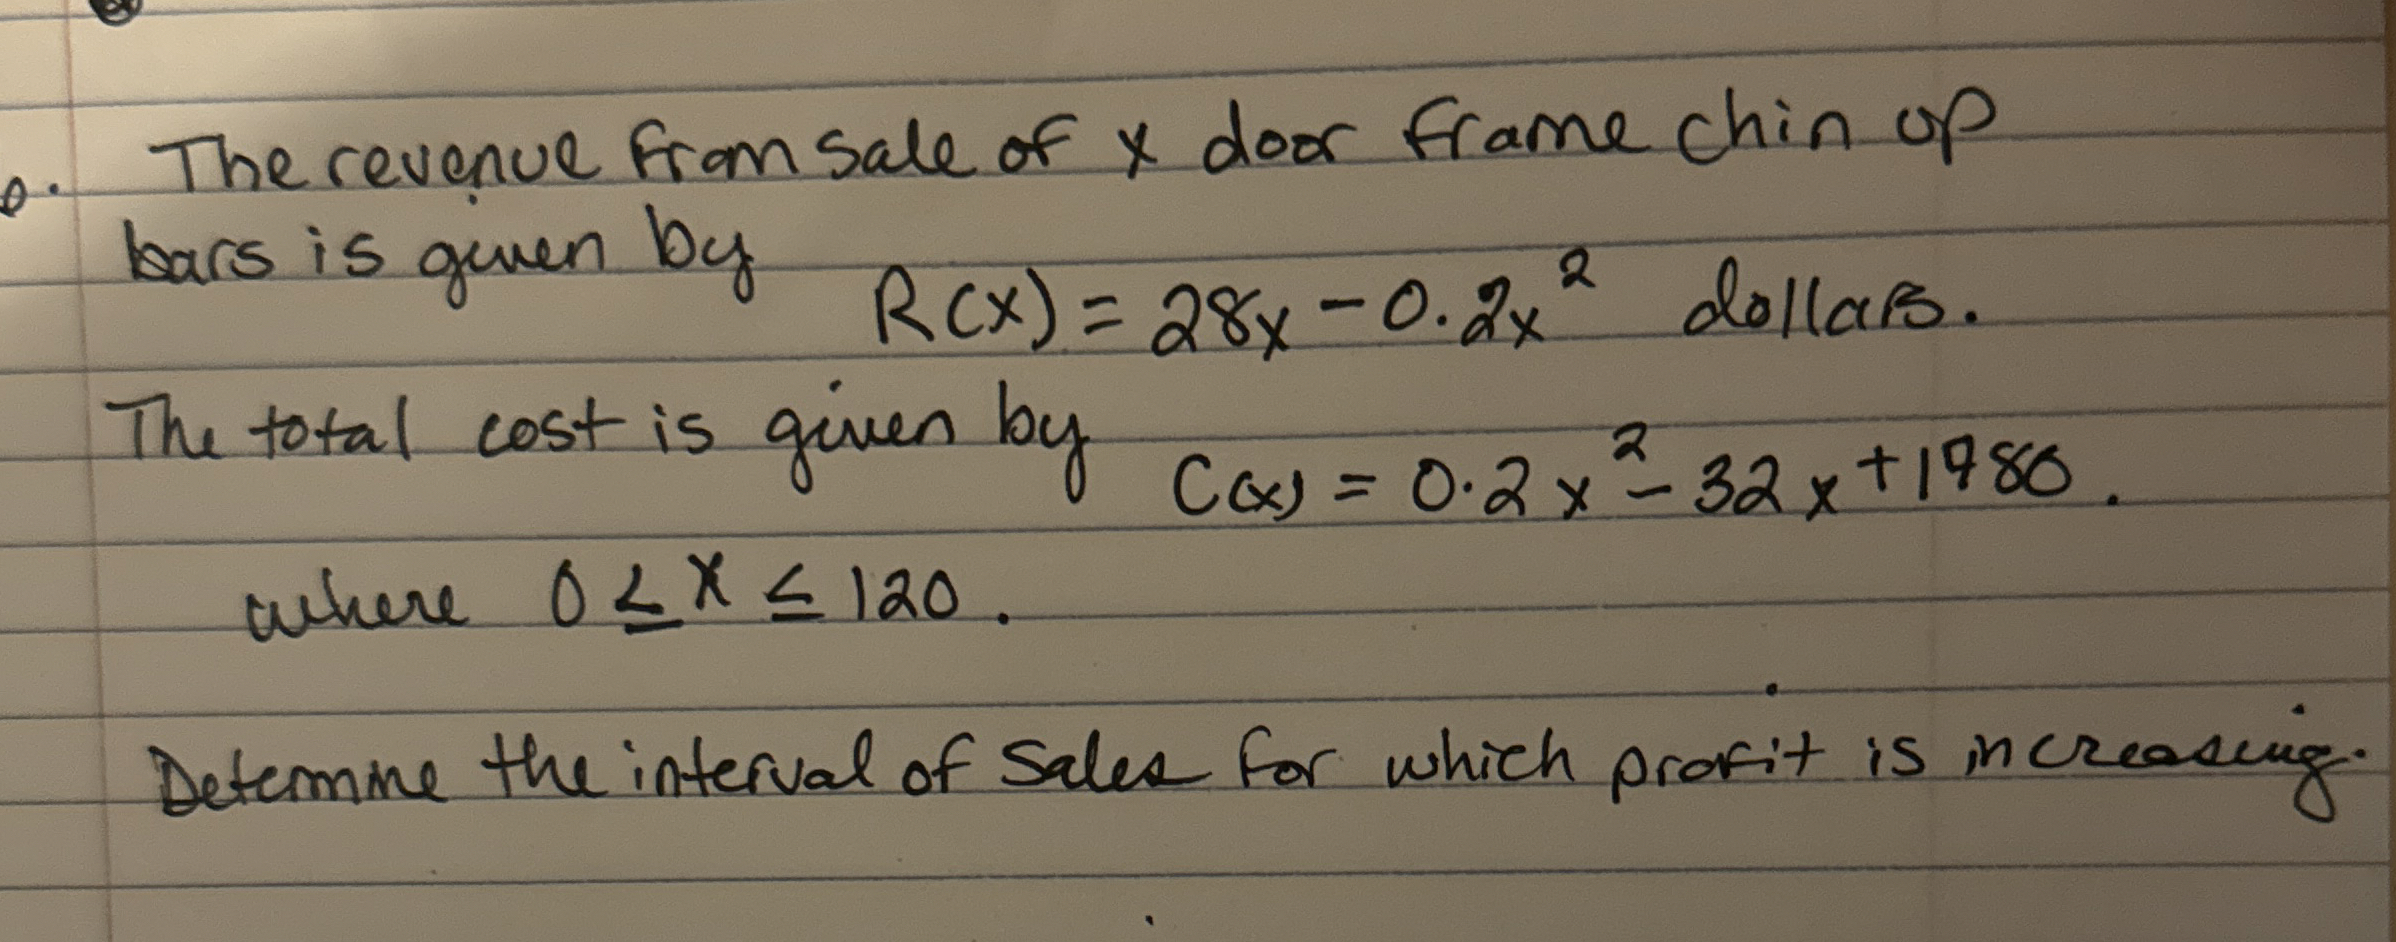 The revenue from sale of x door frame chin up
bars is given by
R(x) = 28x - 0.2x² dollars.
The total cost is given by
C(x) = 0.2x² - 32x + 1980.
where 0 ≤ x ≤ 120.
Determine the interval of sales for which profit is increasing.